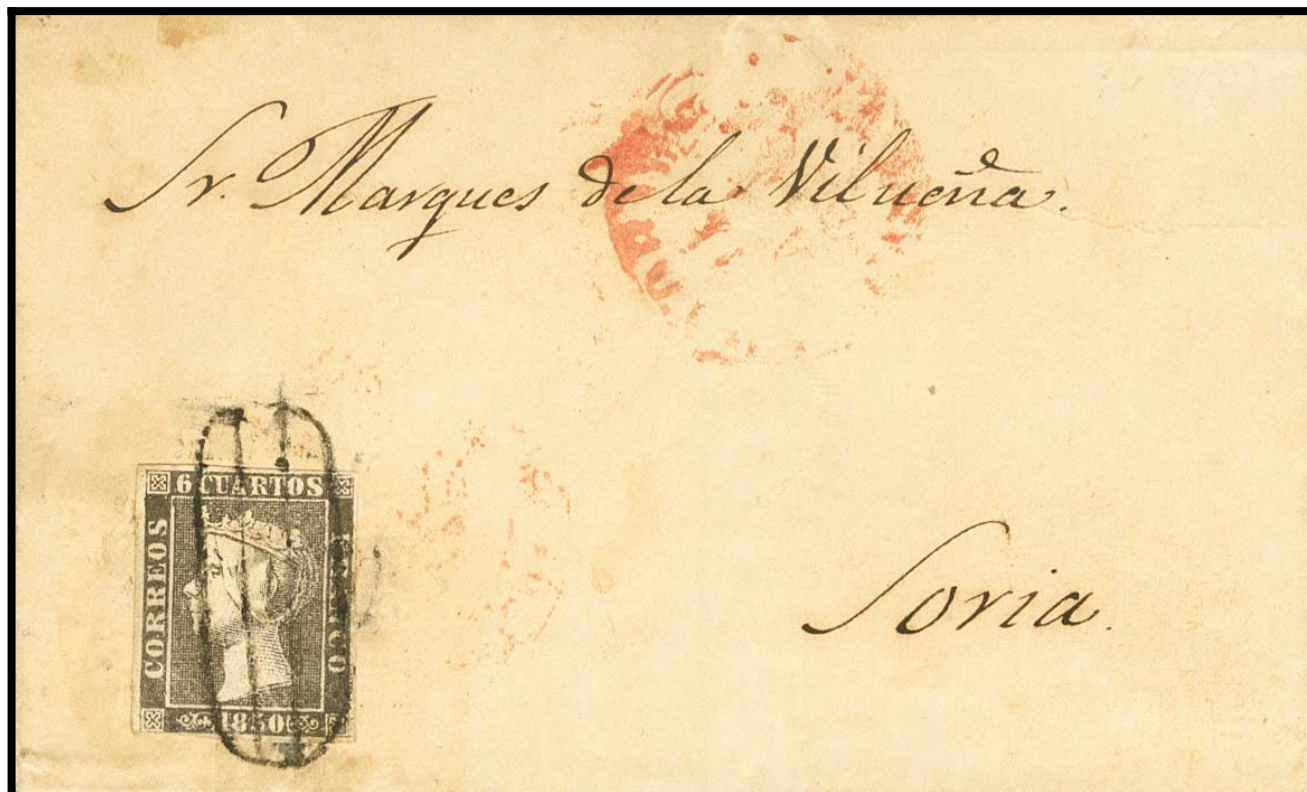 Sr. Marques de la Vilueña.
6 CUARTOS
CORREOS
FRANCO
1850
Soria.